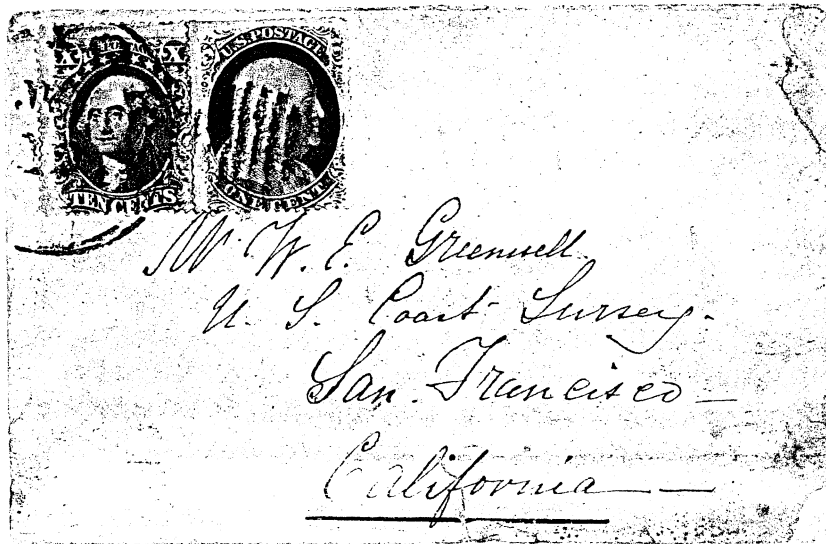 X U.S. POSTAGE X
TEN CENTS
U.S. POSTAGE
ONE CENT
Mr. W. E. Greenwell.
U. S. Coast Survey.
San Francisco—
California—